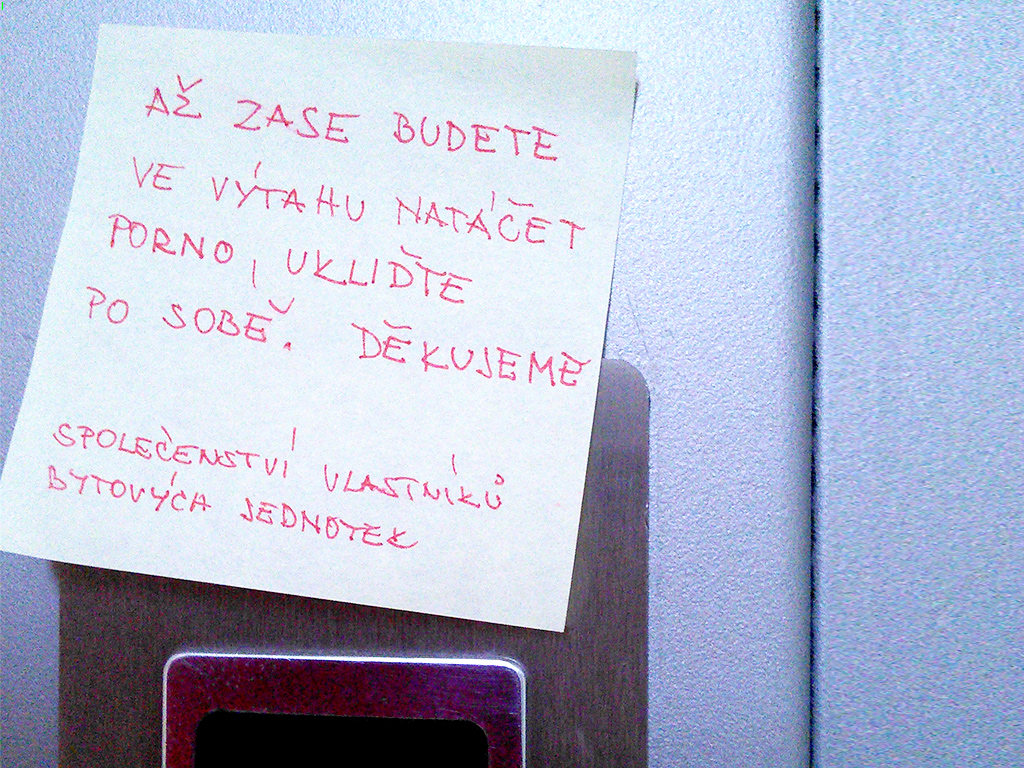 AŽ ZASE BUDETE
VE VÝTAHU NATÁČET
PORNO, UKLIĎTE
PO SOBĚ. DĚKUJEME
SPOLEČENSTVÍ VLASTNÍKŮ
BYTOVÝCH JEDNOTEK